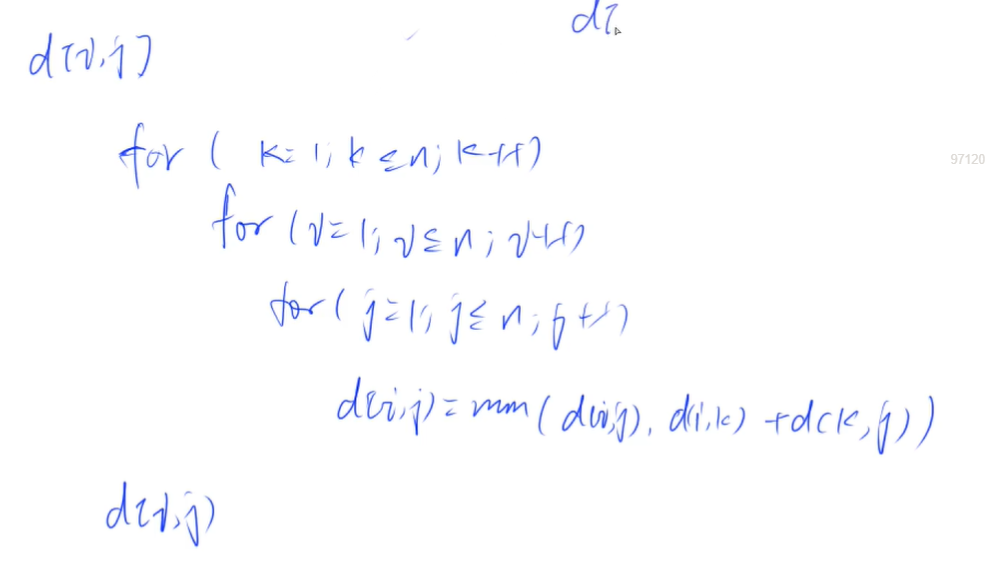 d[
d[i,j]
for ( k=1; k≤n; k++)
97120
for (i=1; i≤n; i++)
for( j=1; j≤n; j++)
d(i,j)=min(d(i,j), d(i,k)+d(k,j))
d[i,j)